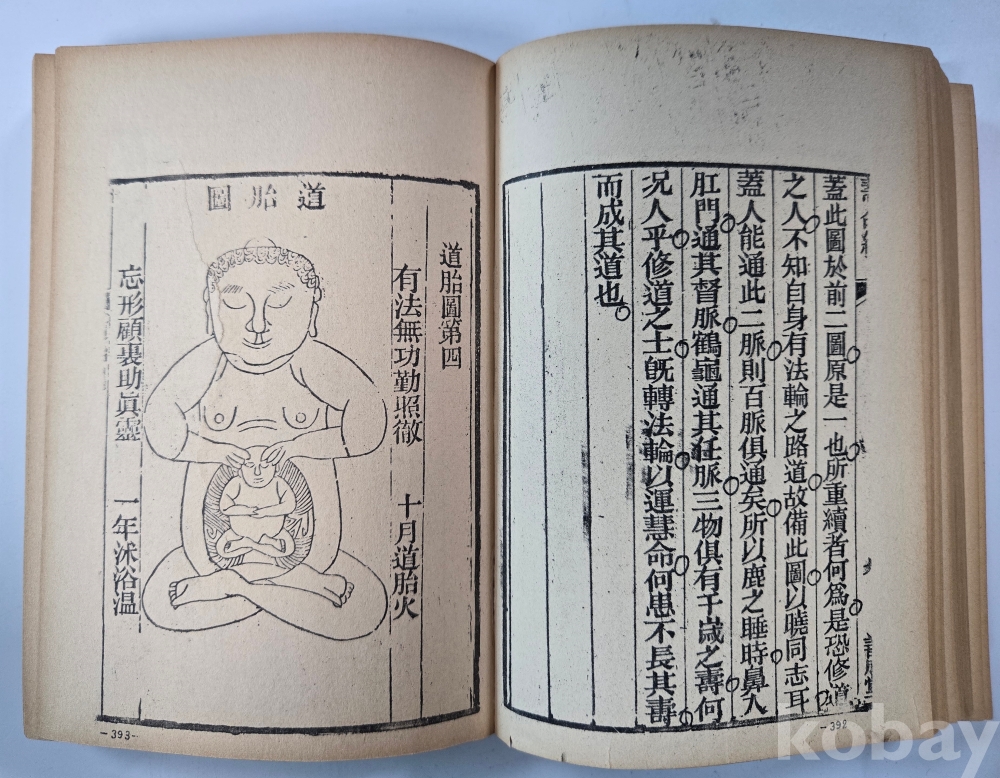 蓋此圖於前二圖原是一也所重續者何爲是恐修道
之人不知自身有法輪之路道故備此圖以曉同志耳
蓋人能通此二脈則百脈俱通矣所以鹿之睡時鼻入
肛門通其督脈鶴龜通其任脈三物俱有千歲之壽何
况人乎修道之士旣轉法輪以運慧命何患不長其壽
而成其道也
道胎圖第四
有法無功勤照徹 十月道胎火
道胎圖
忘形顧裏助眞靈 一年沐浴温
-393-
kobay